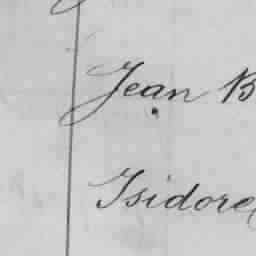 Jean B
Isidore